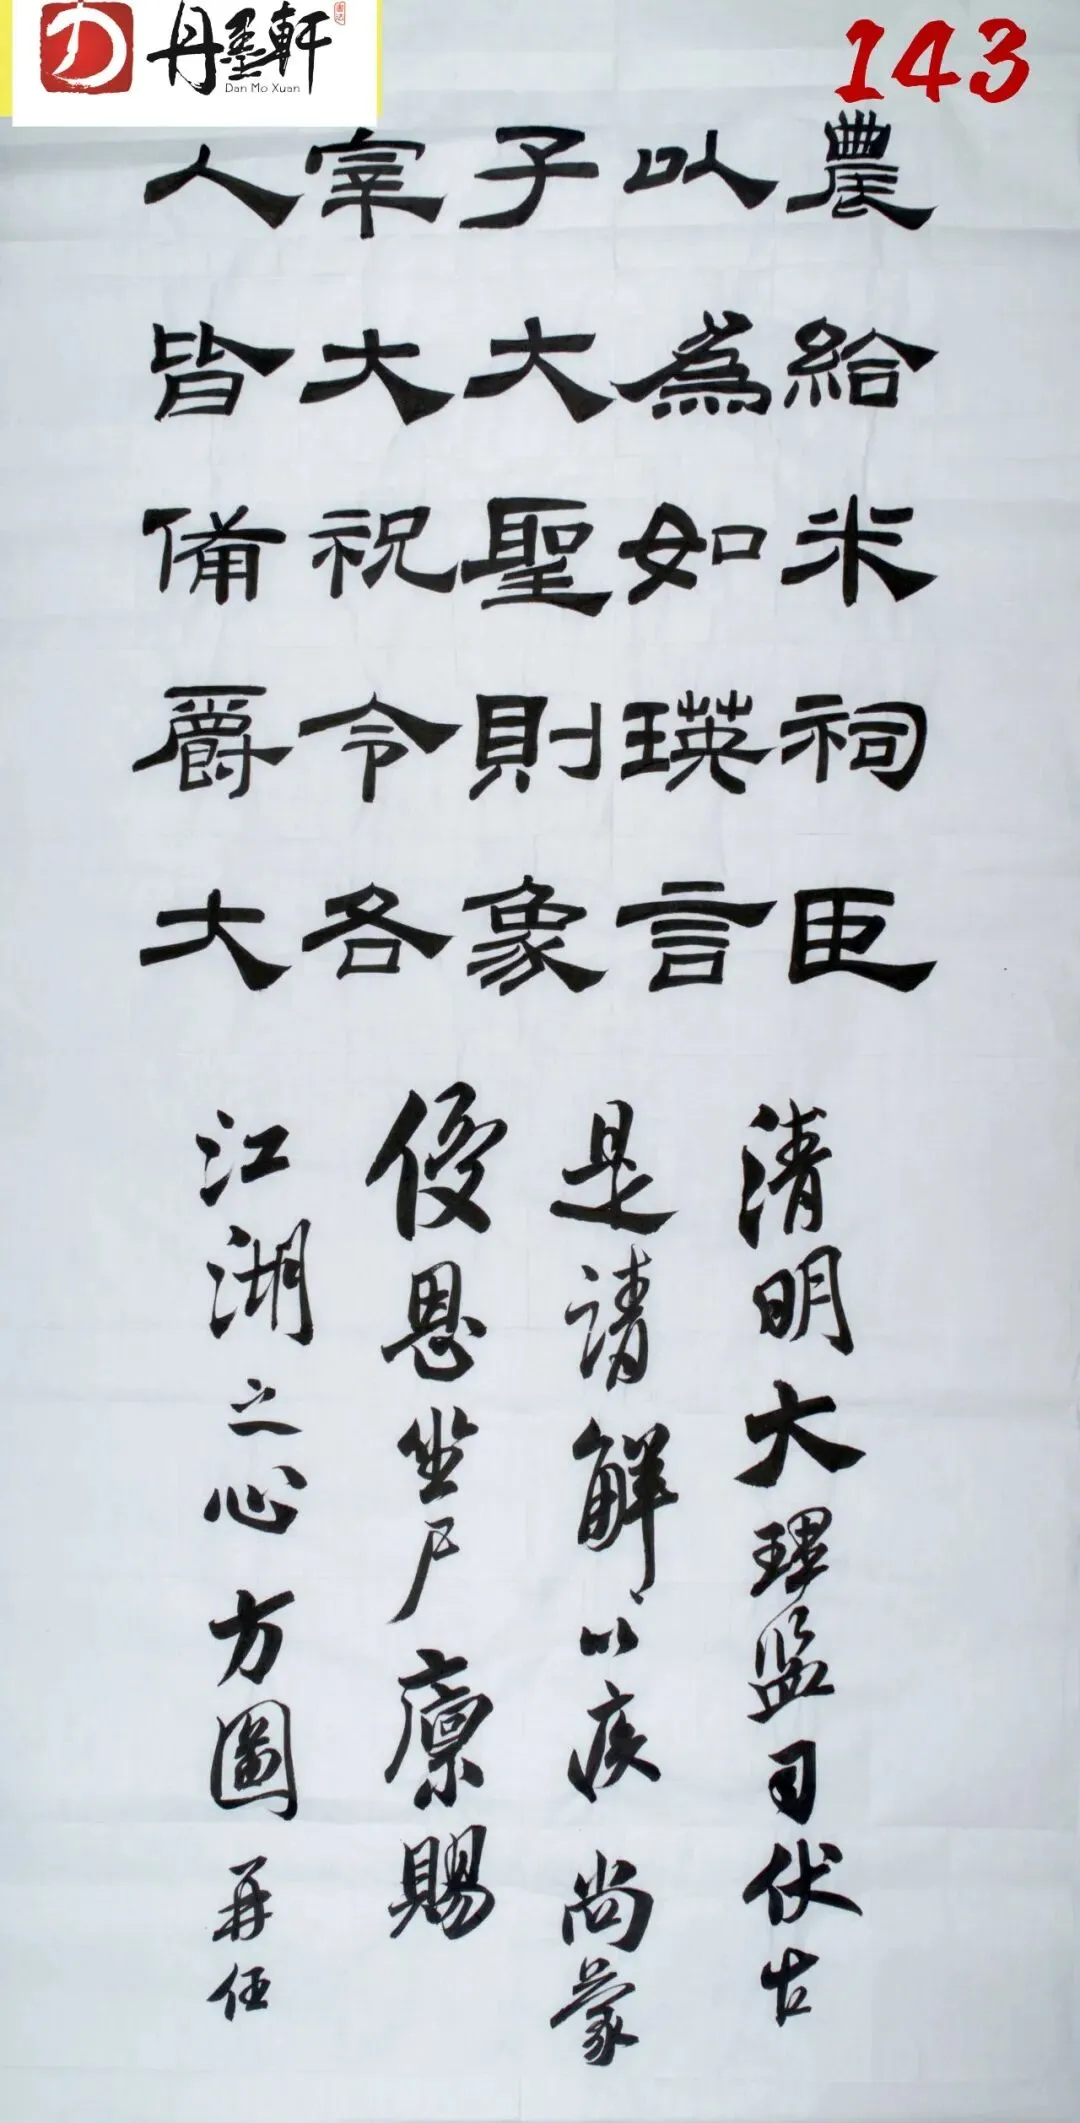 丹墨軒
Dan Mo Xuan
143
農給米祠臣
以為如瑛言
子大聖則象
宰大祝令各
人皆備爵大
清明大理監司伏告
是請解以疾尚蒙
優恩坐尸廪賜
江湖之心方圖再任